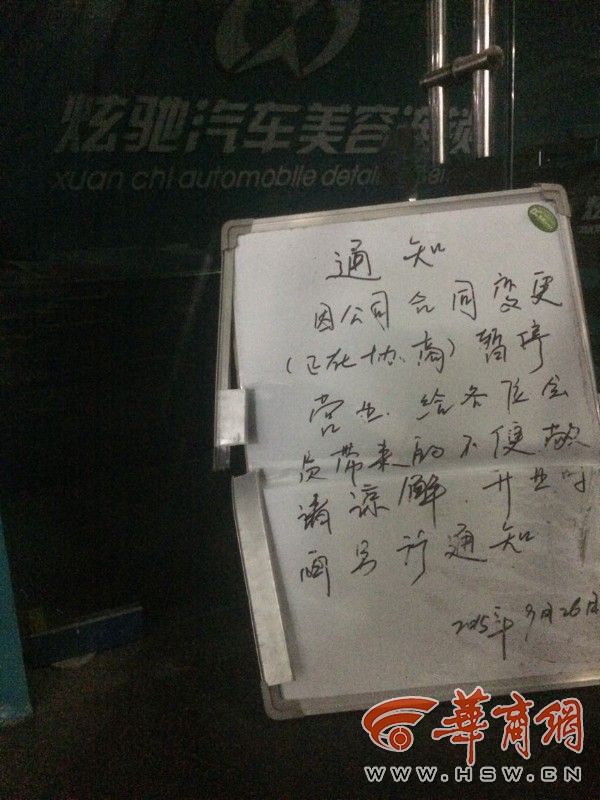 炫驰汽车美容连锁
xuan chi automobile detail
通知
因公司合同变更
(正在协商)暂停
营业.给各位会
员带来的不便敬
请谅解.开业时
间另行通知
2015年9月26日
華商網
WWW.HSW.CN